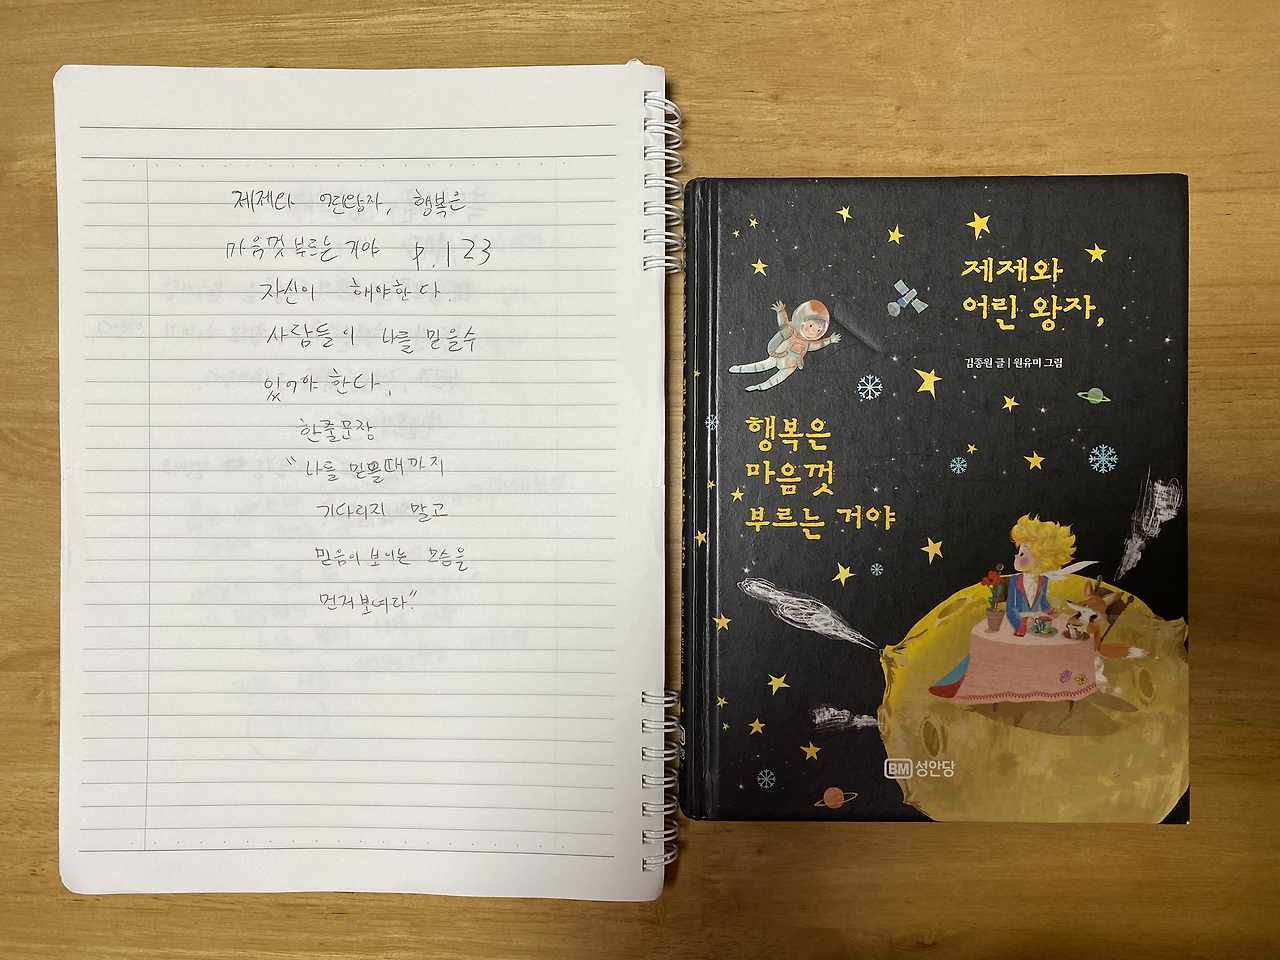 제제와 어린왕자, 행복은
마음껏 부르는 거야 p.123
자신이 해야한다.
사람들이 나를 믿을수
있어야 한다.
한줄문장
"나를 믿을때까지
기다리지 말고
믿음이 보이는 모습을
먼저보여라."
제제와
어린 왕자,
김종원 글 | 원유미 그림
행복은
마음껏
부르는 거야
BM 성안당